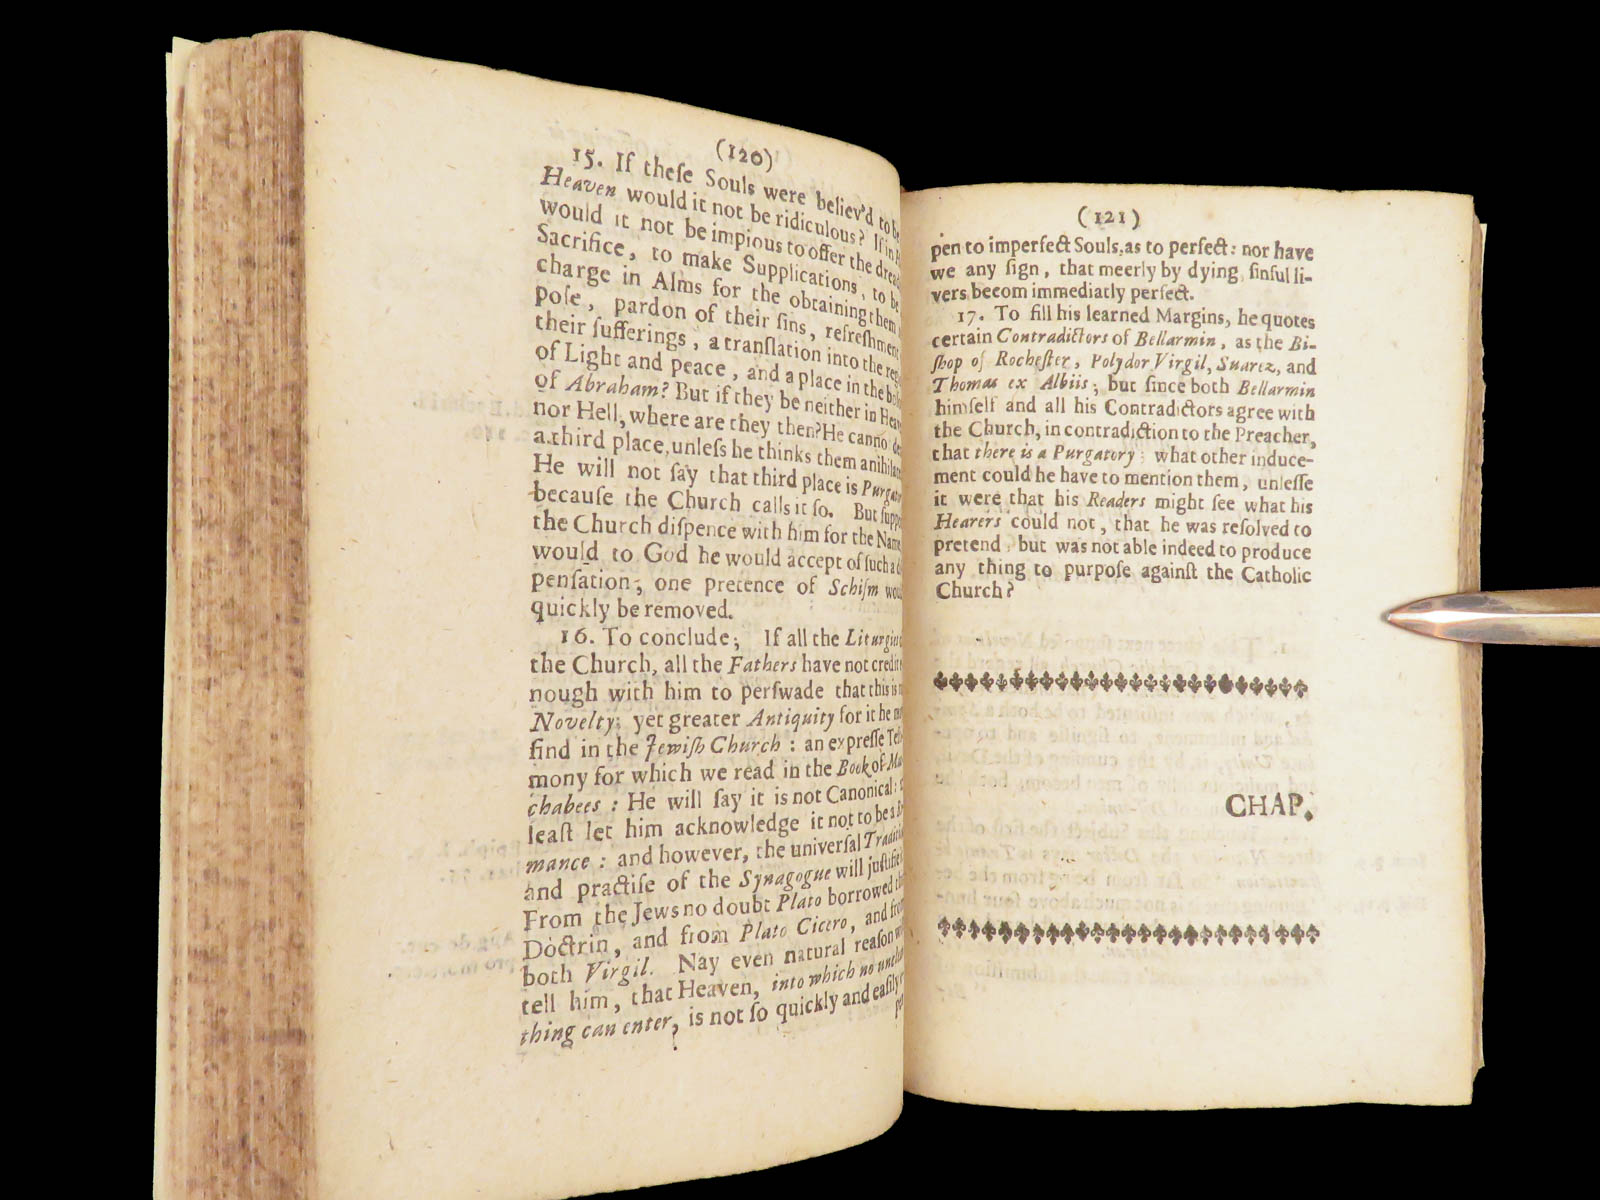 (120)
15. If theſe Souls were believ'd to be
Heaven would it not be ridiculous? If in
would it not be impious to offer the dread
Sacrifice, to make Supplications, to be
charge in Alms for the obtaining them
poſe, pardon of their ſins, refreſhment
their ſufferings, a tranſlation into the reg
of Light and peace, and a place in the boſo
of Abraham? But if they be neither in Heav
nor Hell, where are they then? He canno de
a third place, unleſs he thinks them anihila
He will not ſay that third place is Purgato
becauſe the Church calls it ſo. But ſuppo
the Church diſpence with him for the Name
would to God he would accept of ſuch a d
penſation, one pretence of Schiſm wou
quickly be removed.
16. To conclude; If all the Liturgies
the Church, all the Fathers have not credit e
nough with him to perſwade that this is n
Novelty; yet greater Antiquity for it he may
find in the Jewiſh Church : an expreſſe Teſti
mony for which we read in the Book of Mac
chabees : He will ſay it is not Canonical:
leaſt let him acknowledge it not to be a Ro
mance : and however, the univerſal Traditio
and practiſe of the Synagogue will juſtifie
From the Jews no doubt Plato borrowed th
Doctrin, and from Plato Cicero, and from
both Virgil. Nay even natural reaſon w
tell him, that Heaven, into which no unclean
thing can enter, is not ſo quickly and eaſily
pen
(121)
pen to imperfect Souls, as to perfect: nor have
we any ſign, that meerly by dying, ſinful li-
vers becom immediatly perfect.
17. To fill his learned Margins, he quotes
certain Contradictors of Bellarmin, as the Bi-
ſhop of Rocheſter, Polydor Virgil, Suarez, and
Thomas ex Albiis; but ſince both Bellarmin
himſelf and all his Contradictors agree with
the Church, in contradiction to the Preacher,
that there is a Purgatory; what other induce-
ment could he have to mention them, unleſſe
it were that his Readers might ſee what his
Hearers could not, that he was reſolved to
pretend, but was not able indeed to produce
any thing to purpoſe againſt the Catholic
Church?
CHAP.